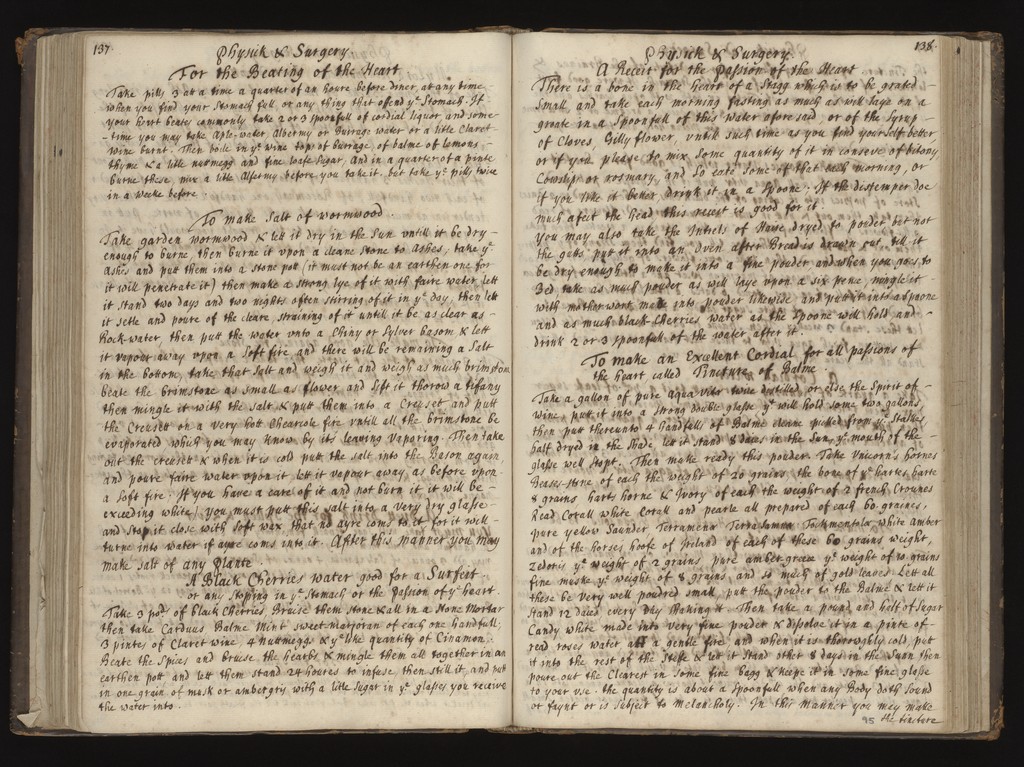 137.
Physick & Surgery.
For the Beating of the Heart
Take pills 3 at a time a quarter of an houre before diner, at any time
when you find your Stomach full, or any thing that offend yᵉ Stomach. If
your heart beates commonly take 2 or 3 spoonfull of cordial liquor, and some-
-time you may take Aple-water Alkermy or Burrage water or a litle Claret
wine burnt. Then boile in yᵉ wine tops of burrage, of balme of lemons,
thyme & a litle nutmegg and fine loafe Sugar, and in a quarter of a pinte
burne these, mix a litle Alkermy before you take it. but take yᵉ pills twice
in a weeke before.
To make Salt of wormwood.
Take garden wormwood & lett it dry in the Sun untill it be dry-
enough to burne, then burne it upon a cleane Stone to Ashes, take yᵉ
Ashes and put them into a Stone pott (it must not be an earthen one for
it will penetrate it) then make a strong lye of it with faire water, lett
it stand two days and two nights often stirring of it in yᵉ day, then lett
it setle and poure of the cleare, straining of it untill it be as clear as-
Rock water, then putt the water unto a Chiny or Sylver basom & lett
it vapour away upon a Soft fire and there will be remaining a Salt
in the bottom, take that Salt and weigh it and weigh as much brimston
beate the brimstone as small as flower, and sift it thorow a tifany
then mingle it with the Salt & putt them into a Creusett and putt
the Creusett on a very hott Charcole fire untill all the brimstone be
evaporated which you may know by its leaving vaporing. Then take
out the creusett & when it is cold putt the salt into the Bason again
and poure faire water upon it lett it vapour away, as before upon
a Soft fire. If you have a care of it and not burn it it will be-
exceeding white, you must putt this salt into a very dry glasse-
and stop it close with soft wax that no ayre coms to it for it will-
turne into water if ayre coms into it. After this manner you may
make salt of any Plante.
A Black Cherries water good for a Surfeet.
or any Stoping in yᵉ Stomach or the Passion of yᵉ heart.
Take 3 pᵈ of black Cherries, Bruise them Stone & all in a Stone Mortar
then take Carduus Balme Mint sweet marjoran of each one handfull,
3 pintes of Claret wine, 4 Nuttmeggs & yᵉ like quantity of Cinamon:
Beate the Spices and bruise the hearbs & mingle them all together in an
earthen pott and lett them stand 24 houres to infuse then still it, and putt
in one grain of musk or ambergris with a litle Sugar in yᵉ glasses you receive
the water into.
138.
Physick & Surgery.
A Receit for the Passion of the Heart
There is a bone in the heart of a Stagg which is to be grated
small, and take each morning fasting as much as will laye on a
groate in a Spoonfull of this water afore said or of the Syrup-
of Cloves, Gilly flower, untill such time as you find yourself better
or if you please to mix some quantity of it in conserve of betony
Cowslip or rosmary, and so eate some of that each morning, or
if you like it better drink it in a Spoone. If the distemper doe
much afect the head this receit is good for it.
You may also take the Intrels of Hares dryed to pouder but not
the gutts put it into an Oven after Bread is drawn out, till it
be dry enough to make it into a fine pouder and when you goes to
Bed take as much pouder as will laye upon a six pence, mingle it
with mother wort made into pouder likewise and putt it into a spoone
and as much black Cherries water as the Spoone will hold and-
drink 2 or 3 spoonfull of the water after it.
To make an Excellent Cordial for all passions of
the heart called Tincture of Balme
Take a gallon of pure Aqua vitæ twice distilled or else the Spirit of-
wine, putt it into a strong double glasse yᵗ will hold some two gallons,
then putt thereunto 4 handfulls of Balme cleane picked from yᵉ Stalkes
half dryed in the Shade lett it stand 8 daies in the Sun, yᵉ mouth of the-
glasse well stopt. Then make ready this pouder. Take Unicorns hornes
Beasor-stone of each the weight of 20 grains, the bone of yᵉ hartes harte
8 grains harts horne & Ivory of each the weight of 2 french Crownes
Read Corall white Corall and pearle all prepared of each 60 graines,
pure yellow Saunder Terramena Terra Samia Tormentela white amber
and of the Horses hoofe of Ireland of each of these 60 grains weight,
Zedoris yᵉ weight of 2 grains pure amber-greece yᵉ weight of 10 grains
fine muske yᵉ weight of 8 grains, and so much of gold leaves. Lett all
these be very well poudred small, putt the pouder to the Balme & lett it
Stand 12 daies every day shaking it. Then take a pound and half of Sugar
Candy white made into very fine pouder & dissolve it in a pinte of-
read roses water att a gentle fire and when it is thoroughly cold putt
it into the rest of the Stuffe & lett it Stand other 8 days in the Sunn then
poure out the Clearest in some fine bagg & keepe it in some fine glasse
to your use. the quantity is about a Spoonfull when any Body doth Sound
or faynt or is subject to Melancholy. In this Manner you may make
95 the tincture